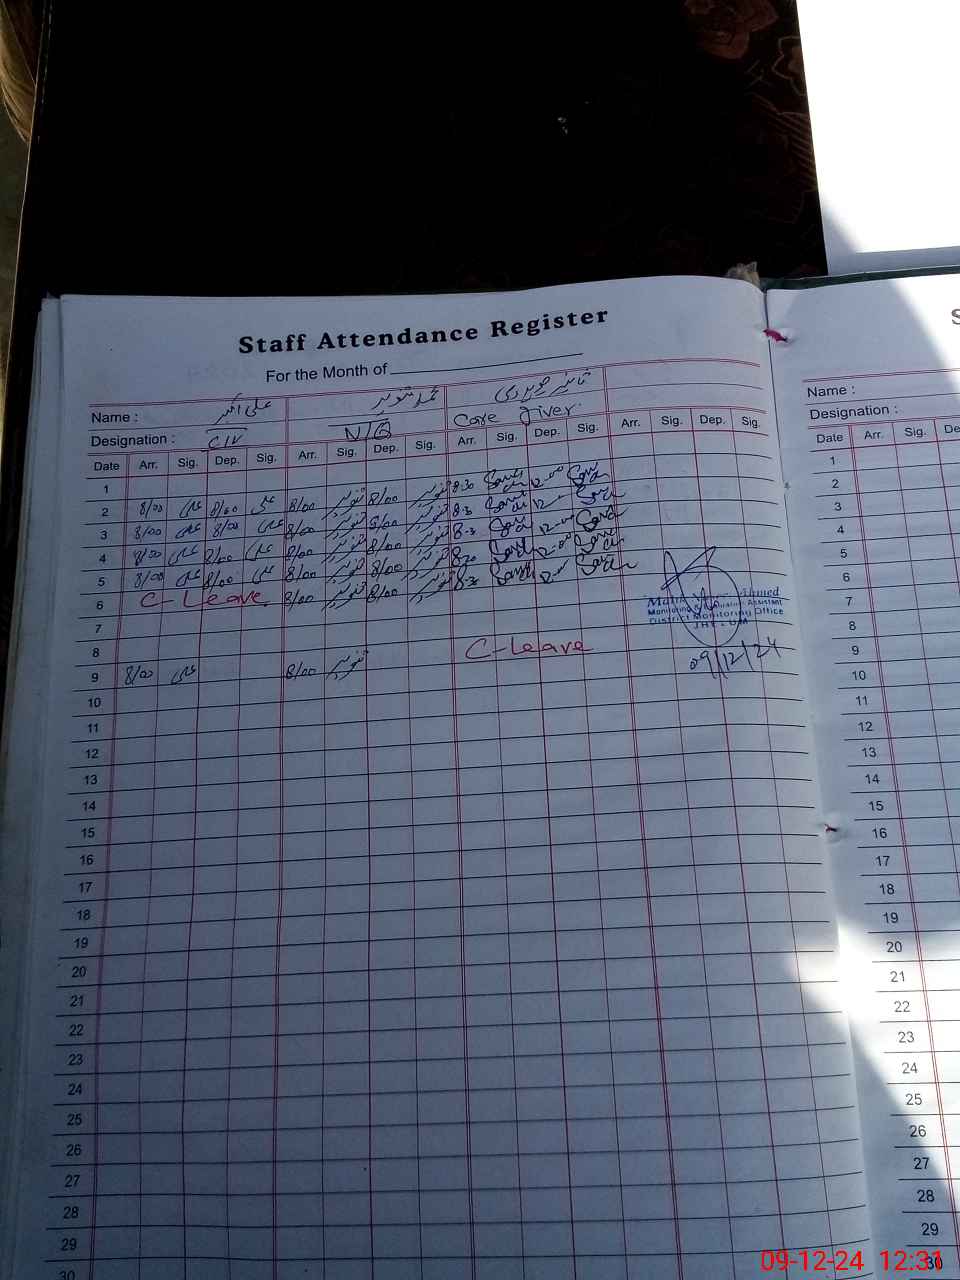 Staff Attendance Register
For the Month of
Name : علی اکبر محمد تنویر
Designation : C/V N/Q Care Giver
Date Arr. Sig. Dep. Sig. Arr. Sig. Dep. Sig. Arr. Sig. Dep. Sig. Arr. Sig. Dep. Sig.
1
2 8/00 علی 8/00 علی 8/00 تنویر 8/00 تنویر 8-30 12-00
3 8/00 علی 8/00 علی 8/00 تنویر 8/00 تنویر 8-3 12
4 8/00 علی 8/00 علی 8/00 تنویر 8/00 تنویر 8-3 12-00
5 8/00 علی 8/00 علی 8/00 تنویر 8/00 تنویر 8-30 12-00
6 C-Leave. 8/00 تنویر 8/00 تنویر 8-30 12-00
7
8
9 8/00 علی 8/00 تنویر C-Leave
Ahmed
Monitoring & Evaluation Assistant
District Monitoring Office
JHELUM
09/12/24
10
11
12
13
14
15
16
17
18
19
20
21
22
23
24
25
26
27
28
29
30
S
Name :
Designation :
Date Arr. Sig. De
1
2
3
4
5
6
7
8
9
10
11
12
13
14
15
16
17
18
19
20
21
22
23
24
25
26
27
28
29
30
09-12-24 12:31